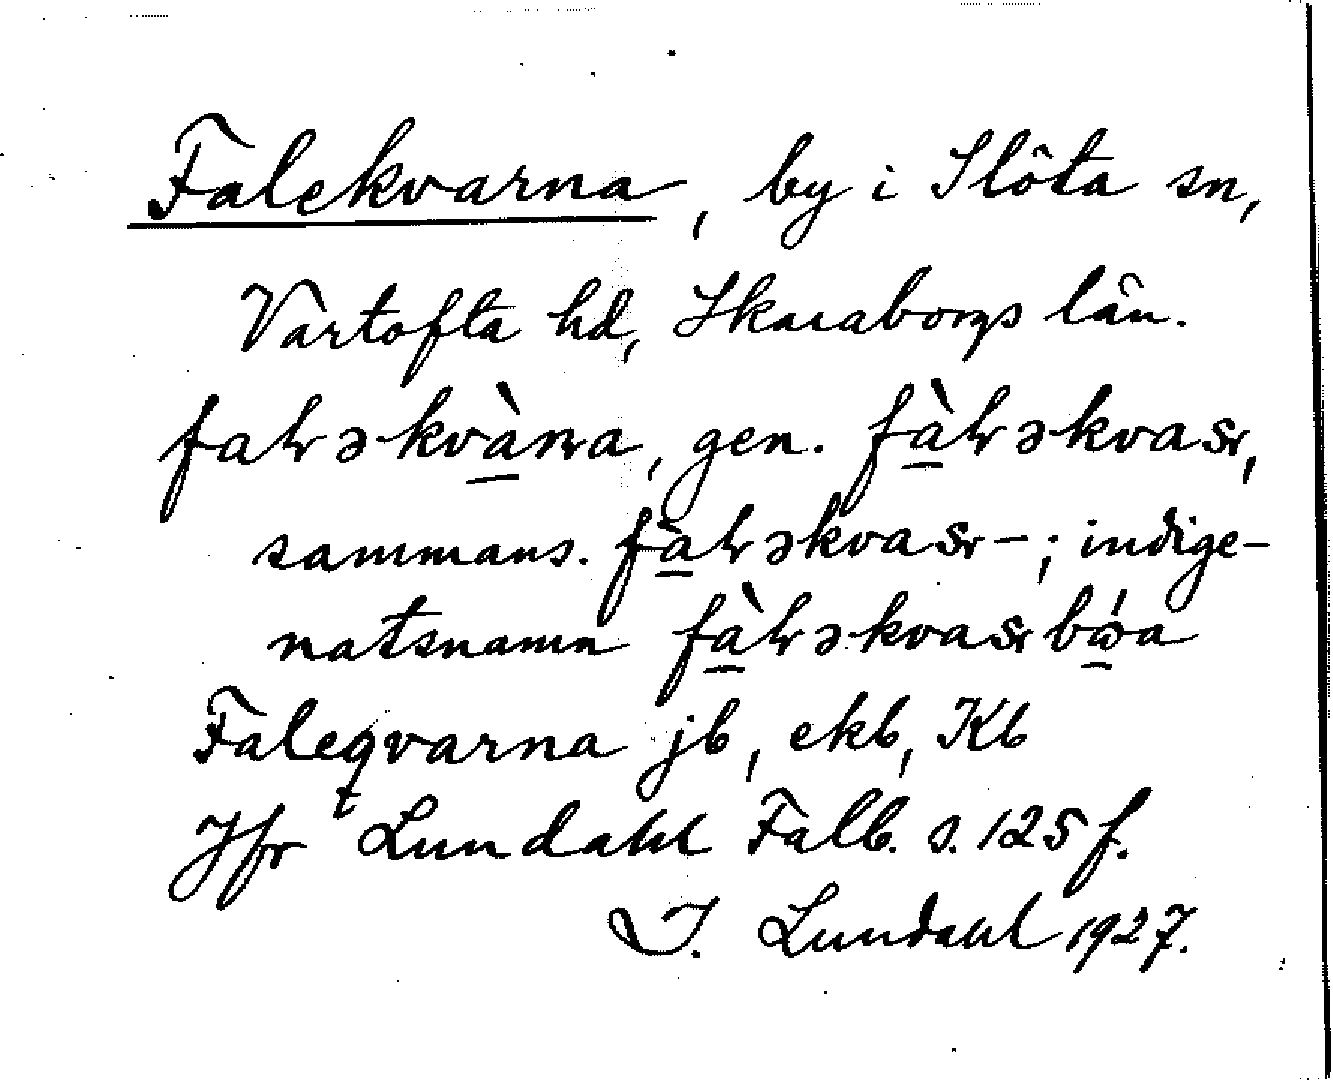 Falekvarna, by i Slöta sn,
Vartofta hd, Skaraborgs län.
faləkvàna, gen. fàləkvas,
sammans. fàləkvas-; indige-
natsnamn fàləkvasbóa
Faleqvarna jb, ekb, Kb
Jfr Lundahl Falb. s. 125 f.
I. Lundahl 1927.